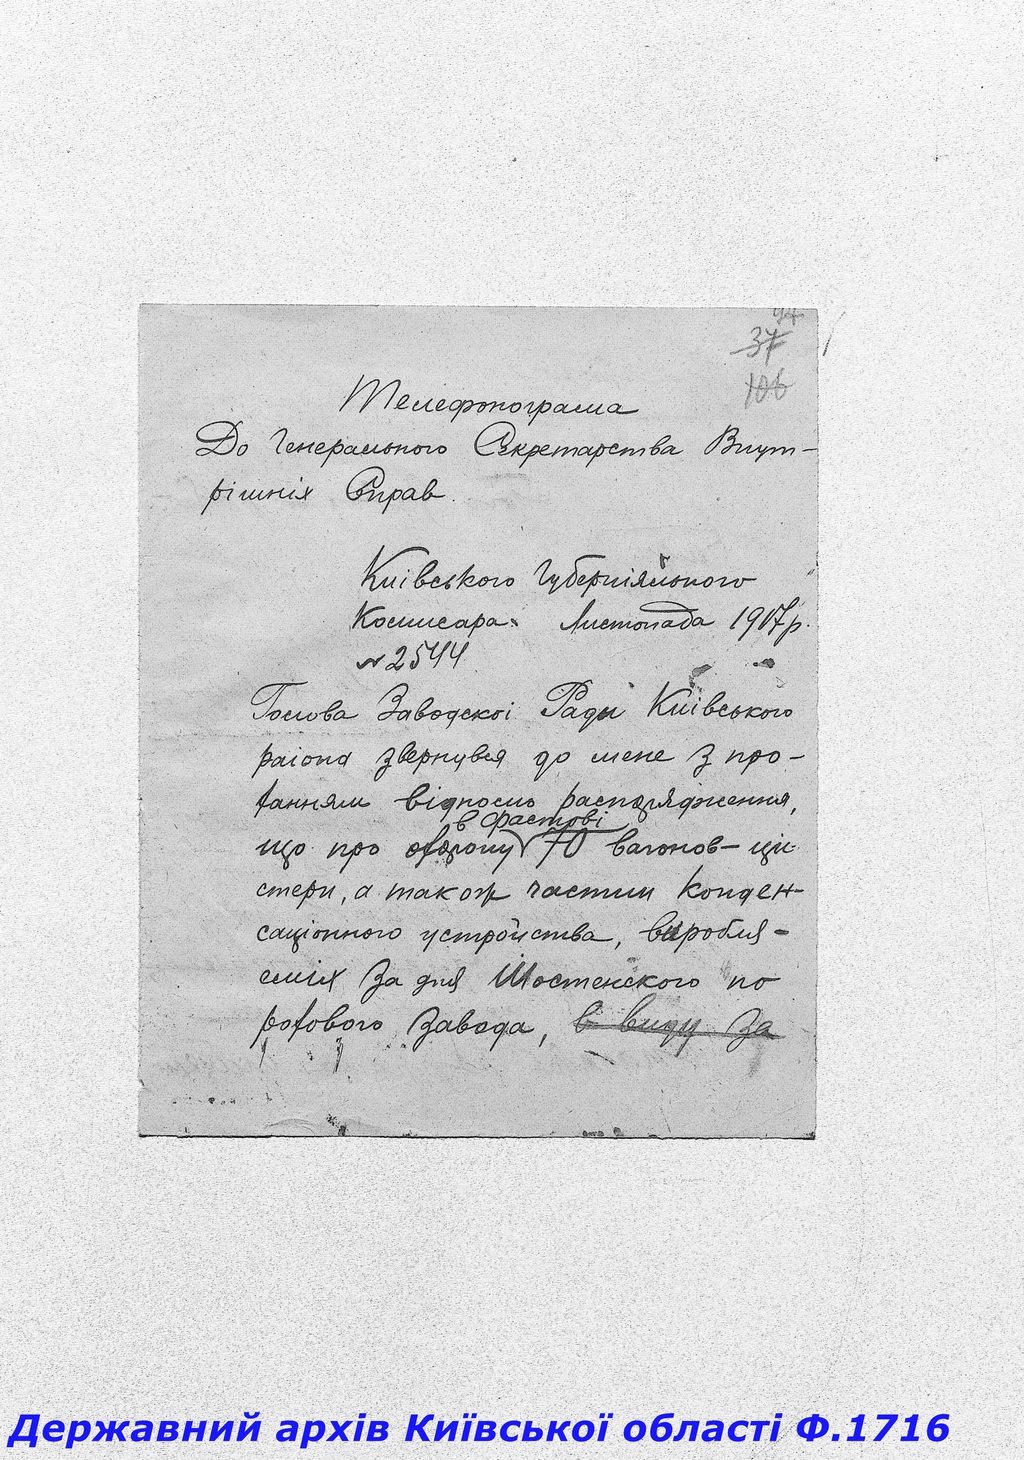 94
37
106
Телефонограма
До Генерального Секретарства Внут-
рішніх Справ.
Киівського Губерніяльного
Комисара. Листопада 1917 р.
№ 2544
Голова Заводскоі Ради Киівського
раіона звернувся до мене з про-
ханням відносно распорядження,
в Фастові
що про охорону 70 вагонов-ци-
стерн, а також частин конден-
саціонного устройства, виробля-
емих За для Шостенского по
рохового завода, в виду за
Державний архів Київської області Ф.1716